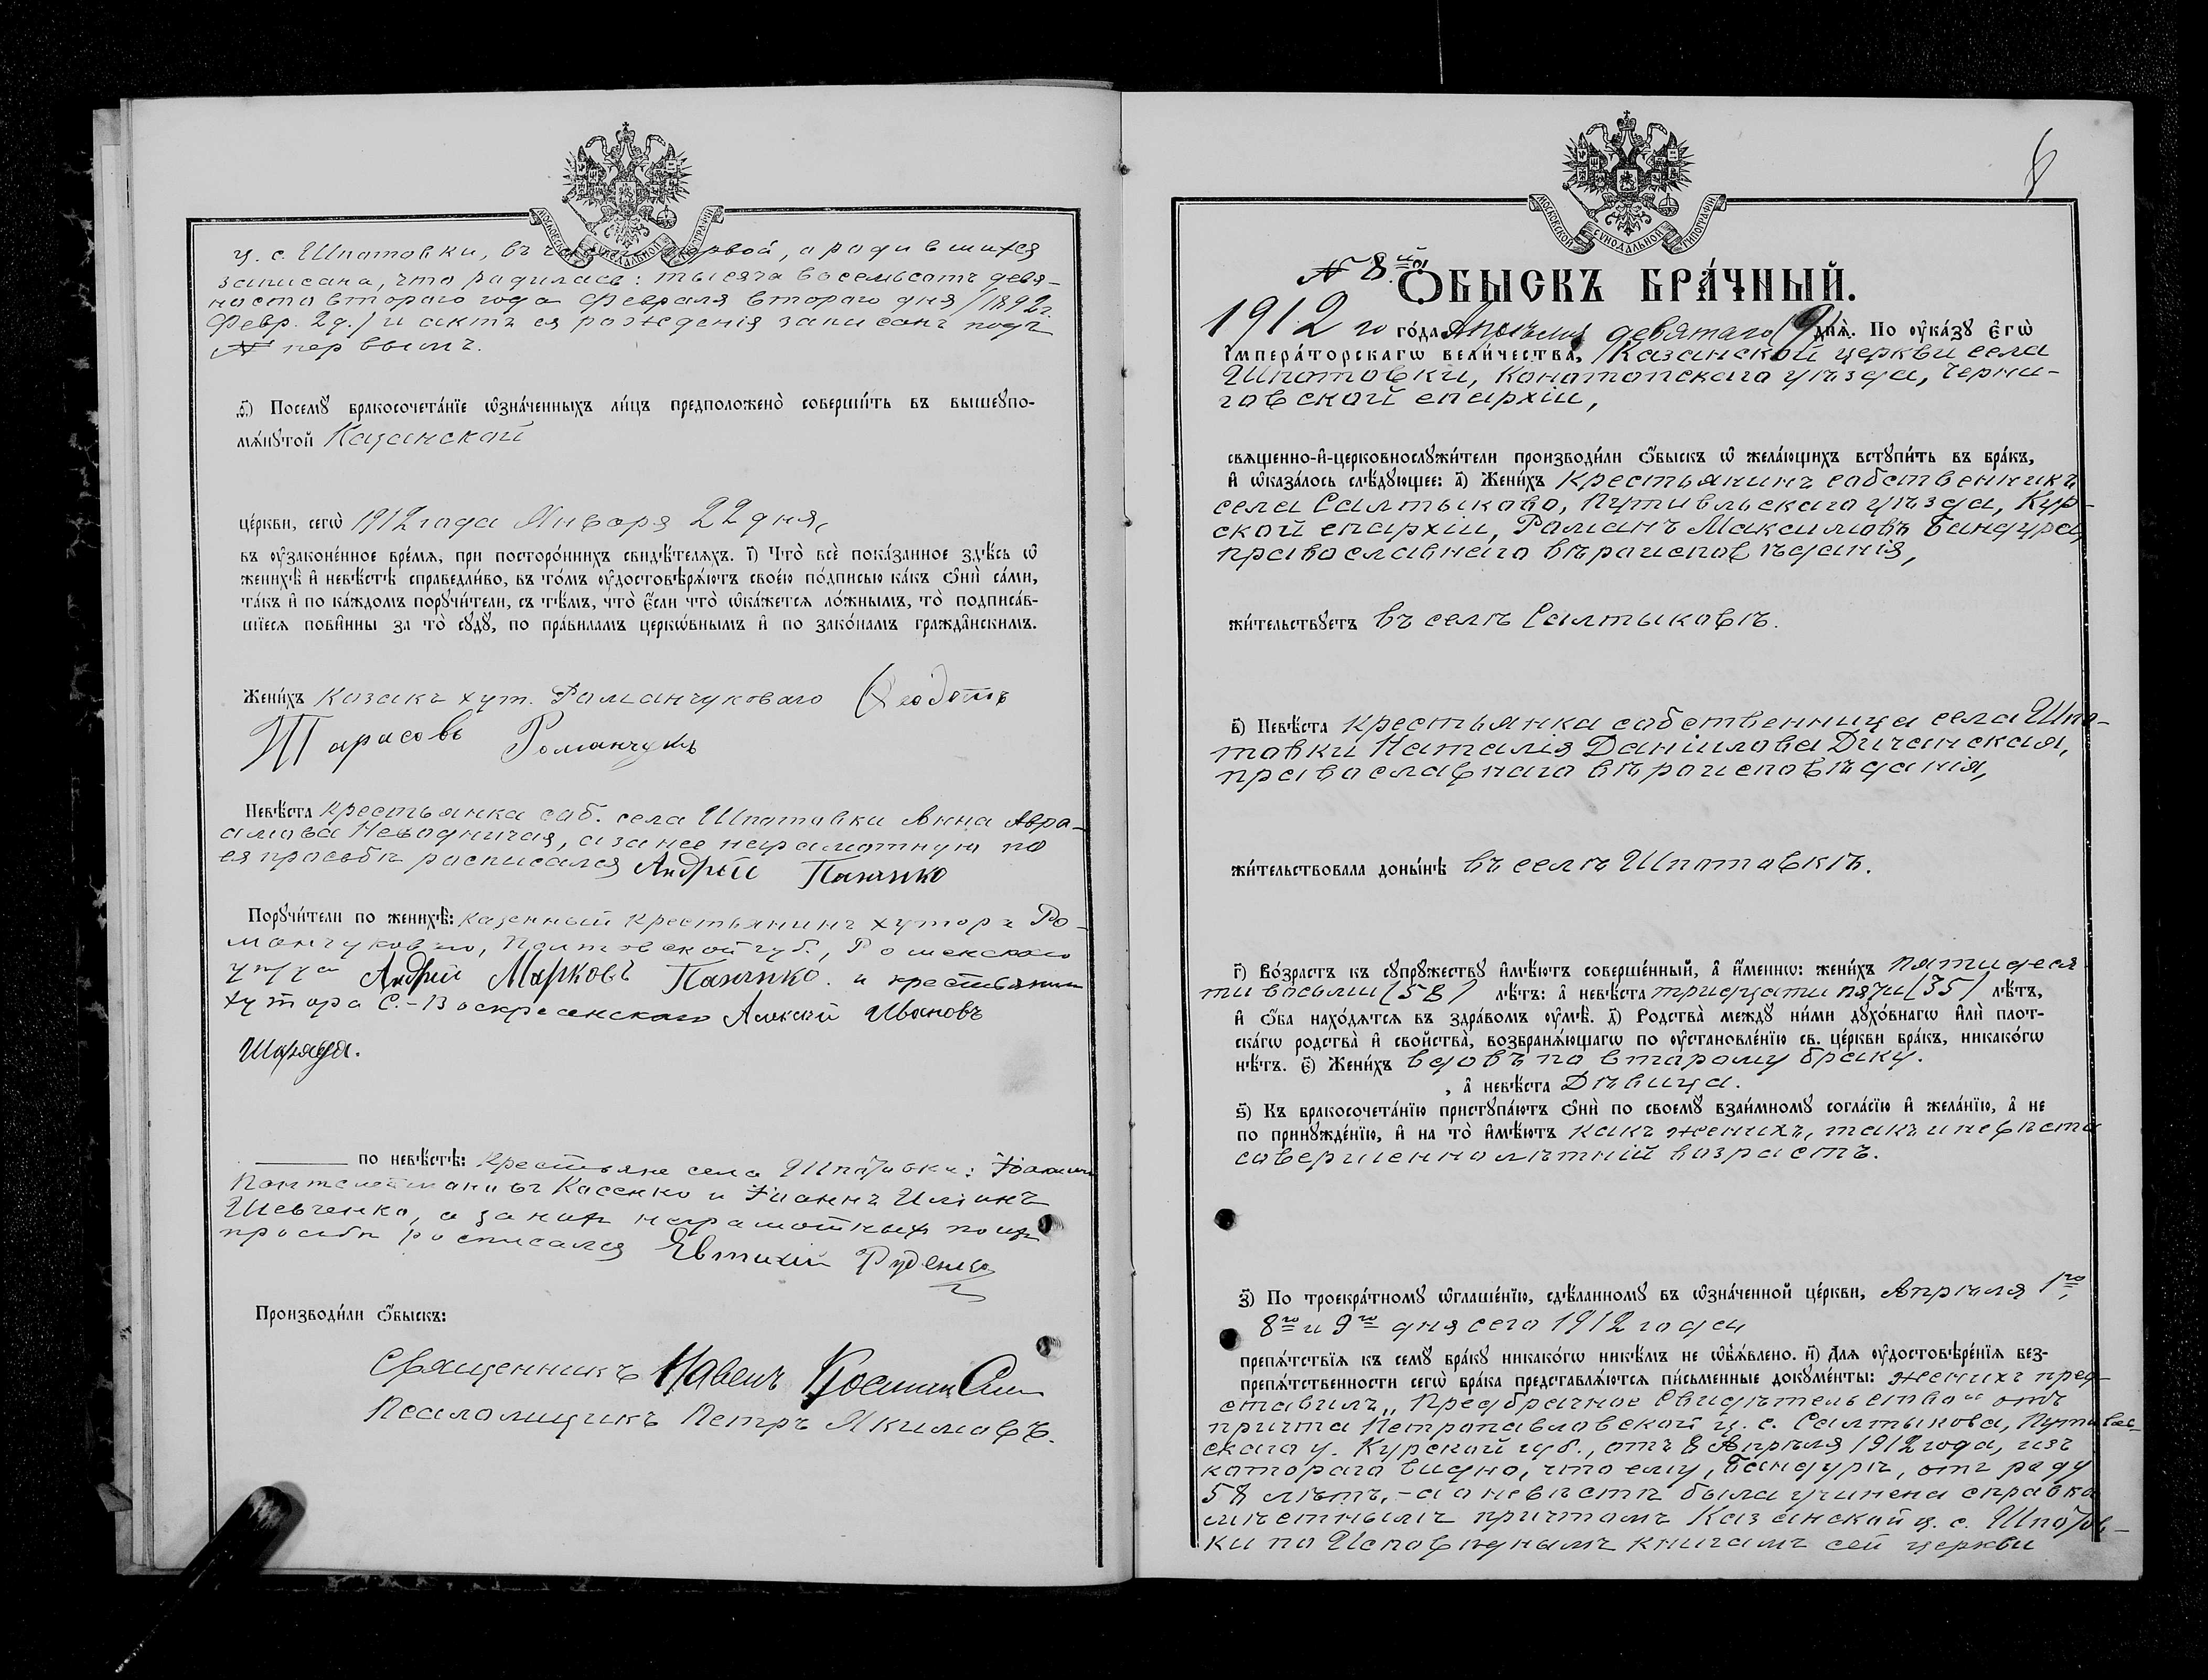 МОСКОВСКОЙ СѴНОДАЛЬНОЙ ТИПОГРАФІИ
ц. с. Шпотовки, въ рвой, а родившихся
записана, что родилась: тысяча восемьсотъ девя-
носто второго года Февраля второго дня /1892 г.
Февр. 2 д./ и актъ ея рожденія записанъ подъ
№ первымъ.
Посемꙋ бракосочета́нїе ѡ҆зна́ченныхъ ли́цъ предположено̀ соверши́ть въ вышеꙋпо-
мѧ́нꙋтой Казанской
це́ркви, сегѡ̀ 1912 года Января 22 дня,
въ ᲂу҆зако́ненное вре́мѧ, при посторо́ннихъ свидѣ́телѧхъ. г҃і) Что̀ всѐ пока́занное здѣ́сь ѡ҆
женихѣ̀ и҆ невѣ́стѣ справедли́во, въ то́мъ ᲂу҆достовѣрѧ́ютъ свое́ю по́дписью ка́къ ѻ҆нѝ са́ми,
та́къ и҆ по ка́ждомъ порꙋчи́тели, съ тѣ́мъ, что̀ є҆́сли что̀ ѡ҆ка́жется ло́жнымъ, то̀ подписа́в-
шїесѧ пови́нны за то̀ сꙋдꙋ̀, по пра́виламъ церко́внымъ и҆ по зако́намъ гражда́нскимъ.
Жени́хъ Казакъ хут. Романчуковаго Ѳеодотъ
Тарасовъ Романчукъ
Невѣ́ста Крестьянка соб. села Шпотовки Анна Авра-
амова Неводничая, а за нее неграмотную по
ея просьбѣ росписался Андрей Панчико
Порꙋчи́тели по женихѣ̀: казенный крестьянинъ хутора Ро-
манчуковаго, Полтовской губ., Роменскаго
уѣзда Андрей Марковъ Панчико. и крестьянин
хутора С.-Воскресенскаго Алексѣй Ивановъ
по невѣ́стѣ: крестьяне села Шпотовки: Іоаннъ
Косенко и Іоаннъ
Шевченко, а за нихъ неграмотныхъ по ихъ
просьбѣ росписался Евтихій Руденко
Производи́ли ѻ҆́быскъ:
Священникъ Павелъ
Псаломщикъ Петръ Якимовъ.
8
МОСКОВСКОЙ СѴНОДАЛЬНОЙ ТИПОГРАФІИ
№ 8й.
Ѻ҆БЫСКЪ БРА́ЧНЫЙ.
1912 го го́да Апрѣля девятаго (9) днѧ̀. По ᲂу҆ка́зꙋ Є҆гѡ̀
І҆мпера́торскагѡ вели́чества, Казанской церкви села
Шпотовки, Конотопскаго уѣзда, Черни-
говской епархіи,
свѧще́нно-и҆-церковнослꙋжи́тели производи́ли ѻ҆́быскъ ѡ҆ жела́ющихъ встꙋпи́ть въ бра́къ,
и҆ ѡ҆каза́лось слѣ́дꙋющее: а҃) Жени́хъ Крестьянинъ собственникъ
села Салтыково, Путивльскаго уѣзда, Кур-
ской епархіи, Романъ Максимовъ Бандура,
православнаго вѣроисповѣданія,
жи́тельствꙋетъ въ селѣ Салтыковѣ.
в҃) Невѣ́ста Крестьянка собственница села Шпо-
товки Наталія Даніилова Дичанская,
православнаго вѣроисповѣданія,
жи́тельствовала доны́нѣ въ селѣ Шпотовкѣ.
г҃) Во́зрастъ къ сꙋпрꙋ́жествꙋ и҆мѣ́ютъ соверше́нный, а҆ и҆́меннѡ: жени́хъ пятидеся-
ти восьми (58) лѣ́тъ: а҆ невѣ́ста тридцати пяти (35) лѣ́тъ,
и҆ ѻ҆́ба нахо́дѧтсѧ въ здра́вомъ ᲂу҆мѣ̀. д҃) Родства̀ междꙋ ни́ми дꙋхо́внагѡ и҆лѝ плот-
ска́гѡ родства̀ и҆ сво́йства, возбранѧ́ющагѡ по ᲂу҆становле́нїю св. це́ркви бра́къ, никако́гѡ
нѣ́тъ. є҃) Жени́хъ вдовъ по второму браку.
, а҆ невѣ́ста Дѣвица.
ѕ҃) Къ бракосочета́нїю пристꙋпа́ютъ ѻ҆нѝ по своемꙋ̀ взаи́мномꙋ согла́сїю и҆ жела́нїю, а҆ не
по принꙋжде́нїю, и҆ на то̀ и҆мѣ́ютъ какъ женихъ, такъ и невѣста
совершеннолѣтній возрастъ.
з҃) По троекра́тномꙋ ѡ҆глаше́нїю, сдѣ́ланномꙋ въ ѡ҆зна́ченной це́ркви, Апрѣля 1го,
8го и 9го дня сего 1912 года
препѧ́тствїѧ къ семꙋ̀ бра́кꙋ никако́гѡ никѣ́мъ не ѡ҆б̾ѧ́влено. и҃) Для ᲂу҆достовѣре́нїѧ без-
препѧ́тственности сегѡ̀ бра́ка представлѧ́ютсѧ пи́сьменные докꙋме́нты: женихъ пред-
ставилъ „Предбрачное Свидѣтельство“ отъ
причта Петропавловской ц. с. Салтыкова, Путивль-
скаго у. Курской губ., отъ 8 Апрѣля 1912 года, изъ
котораго видно, что ему, Бандурѣ, отъ роду
58 лѣтъ, - а о невѣстѣ была учинена справка
мѣстнымъ причтомъ Казанской ц. с. Шпотов-
ки по Исповѣднымъ книгамъ сей церкви